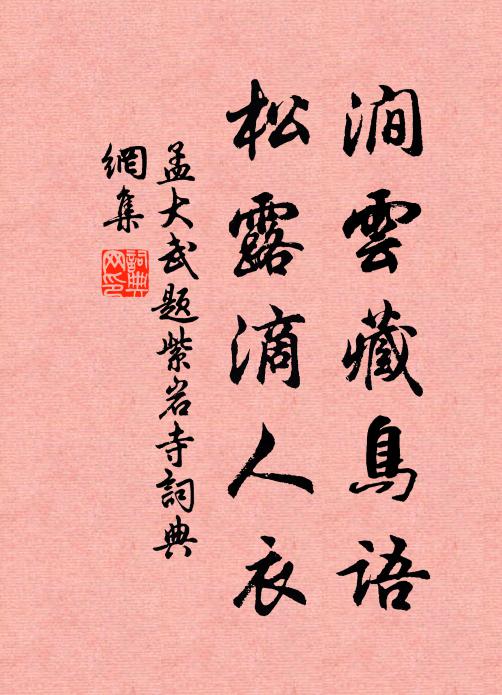 澗雲藏鳥語
松露滴人衣
孟大武題紫岩寺詞典
網集
詞典
网印